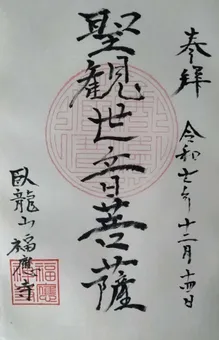 奉拝
令和七年十二月十四日
聖観世音菩薩
臥龍山福應寺